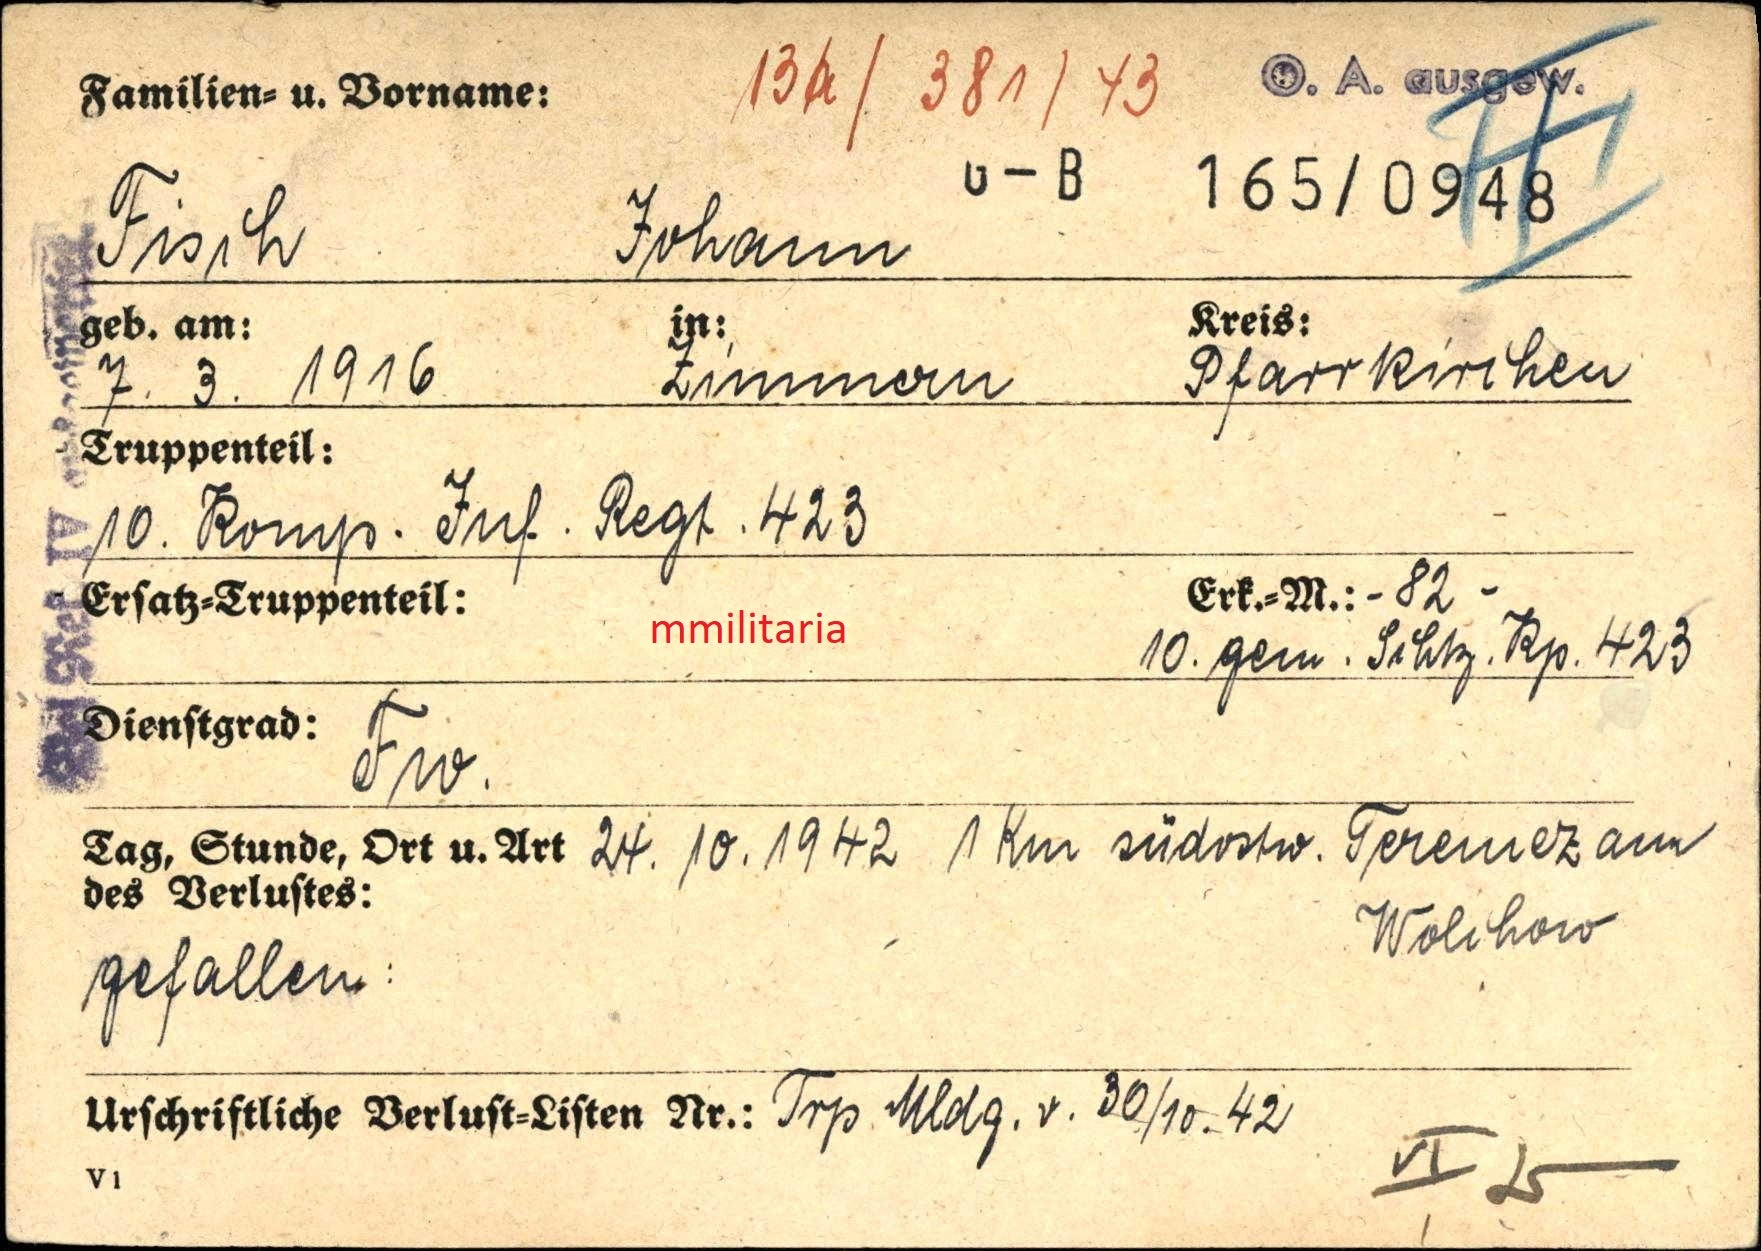 Familien- u. Vorname:
13a / 381 / 43
O. A. ausgew.
III
u - B 165/0948
Fisch Johann
geb. am: in: Kreis:
7. 3. 1916 Zimmern Pfarrkirchen
Truppenteil:
10. Komp. Inf. Regt. 423
Ersatz-Truppenteil: Erk.-M.: - 82 -
mmilitaria
10. gem. Schtz. Kp. 423
Dienstgrad: Fw.
Tag, Stunde, Ort u. Art 24. 10. 1942 1 Km südostw. Teremez am
des Verlustes: Wolchow
gefallen.
Urschriftliche Verlust-Listen Nr.: Trp Mldg. v. 30/10. 42
V 1
VI